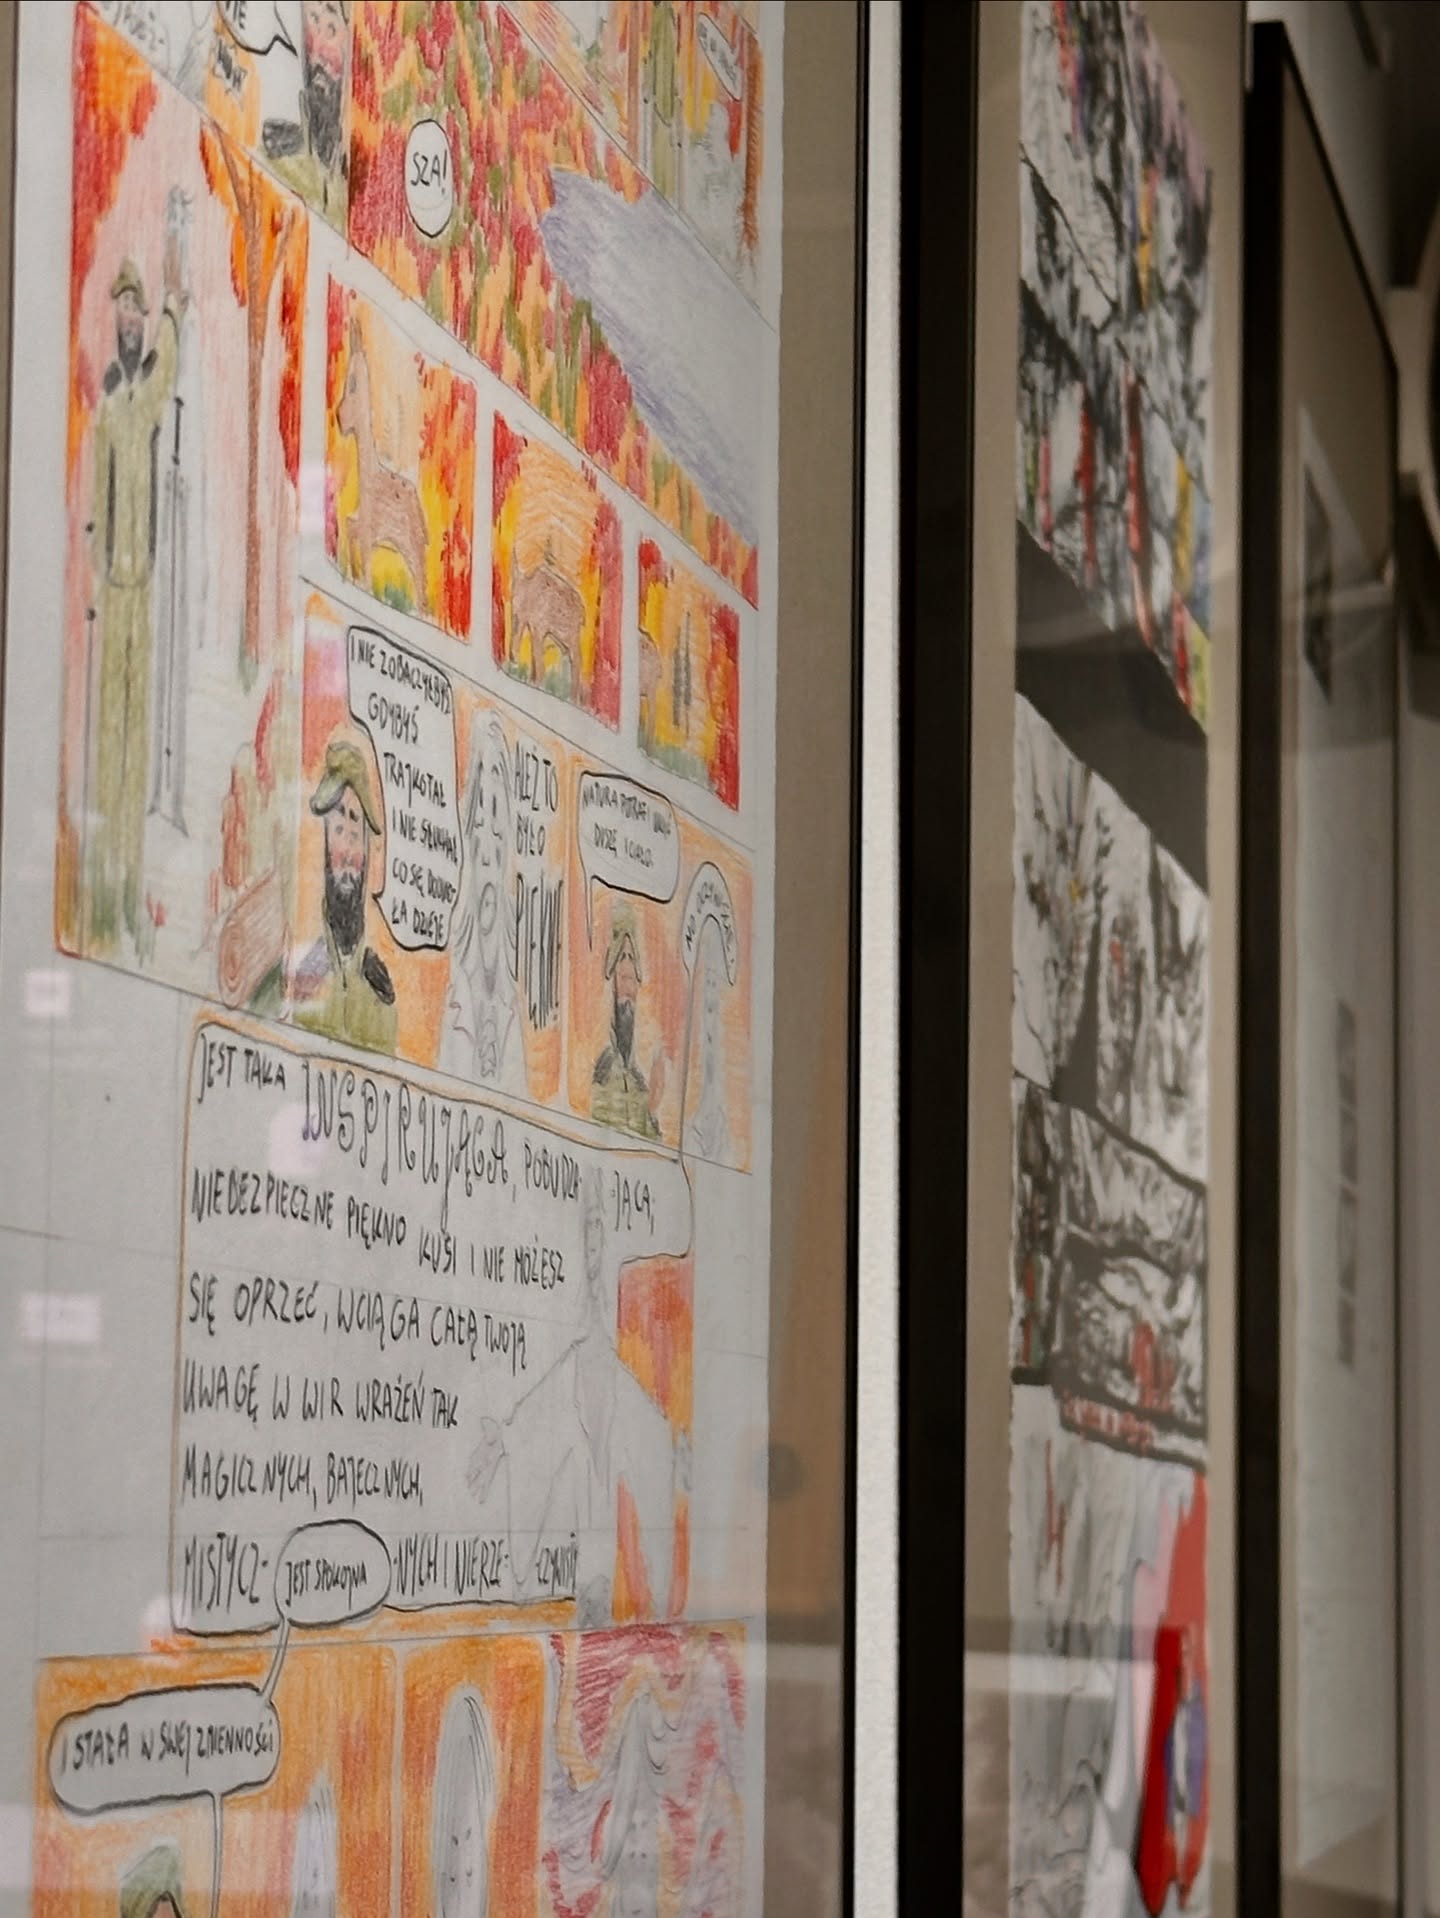 SZA!
I NIE ZOBACZYŁBYŚ
GDYBYŚ
TRAJKOTAŁ
I NIE SŁUCHAŁ
CO SIĘ DOOKO-
ŁA DZIEJE
ALEŻ TO
BYŁO
PIĘKNE!
NATURA POTRAFI
DUSZĘ I CIAŁO.
NO
JEST TAKA INSPIRUJĄCA, POBUDZA- -JĄCA,
NIEBEZPIECZNE PIĘKNO KUSI I NIE MOŻESZ
SIĘ OPRZEĆ, WCIĄGA CAŁĄ TWOJĄ
UWAGĘ W WIR WRAŻEŃ TAK
MAGICZNYCH, BAJECZNYCH,
MISTYCZ- -NYCH I NIERZE- -CZYWISTY
JEST SPOKOJNA
I STAŁA W SWEJ ZMIENNOŚCI